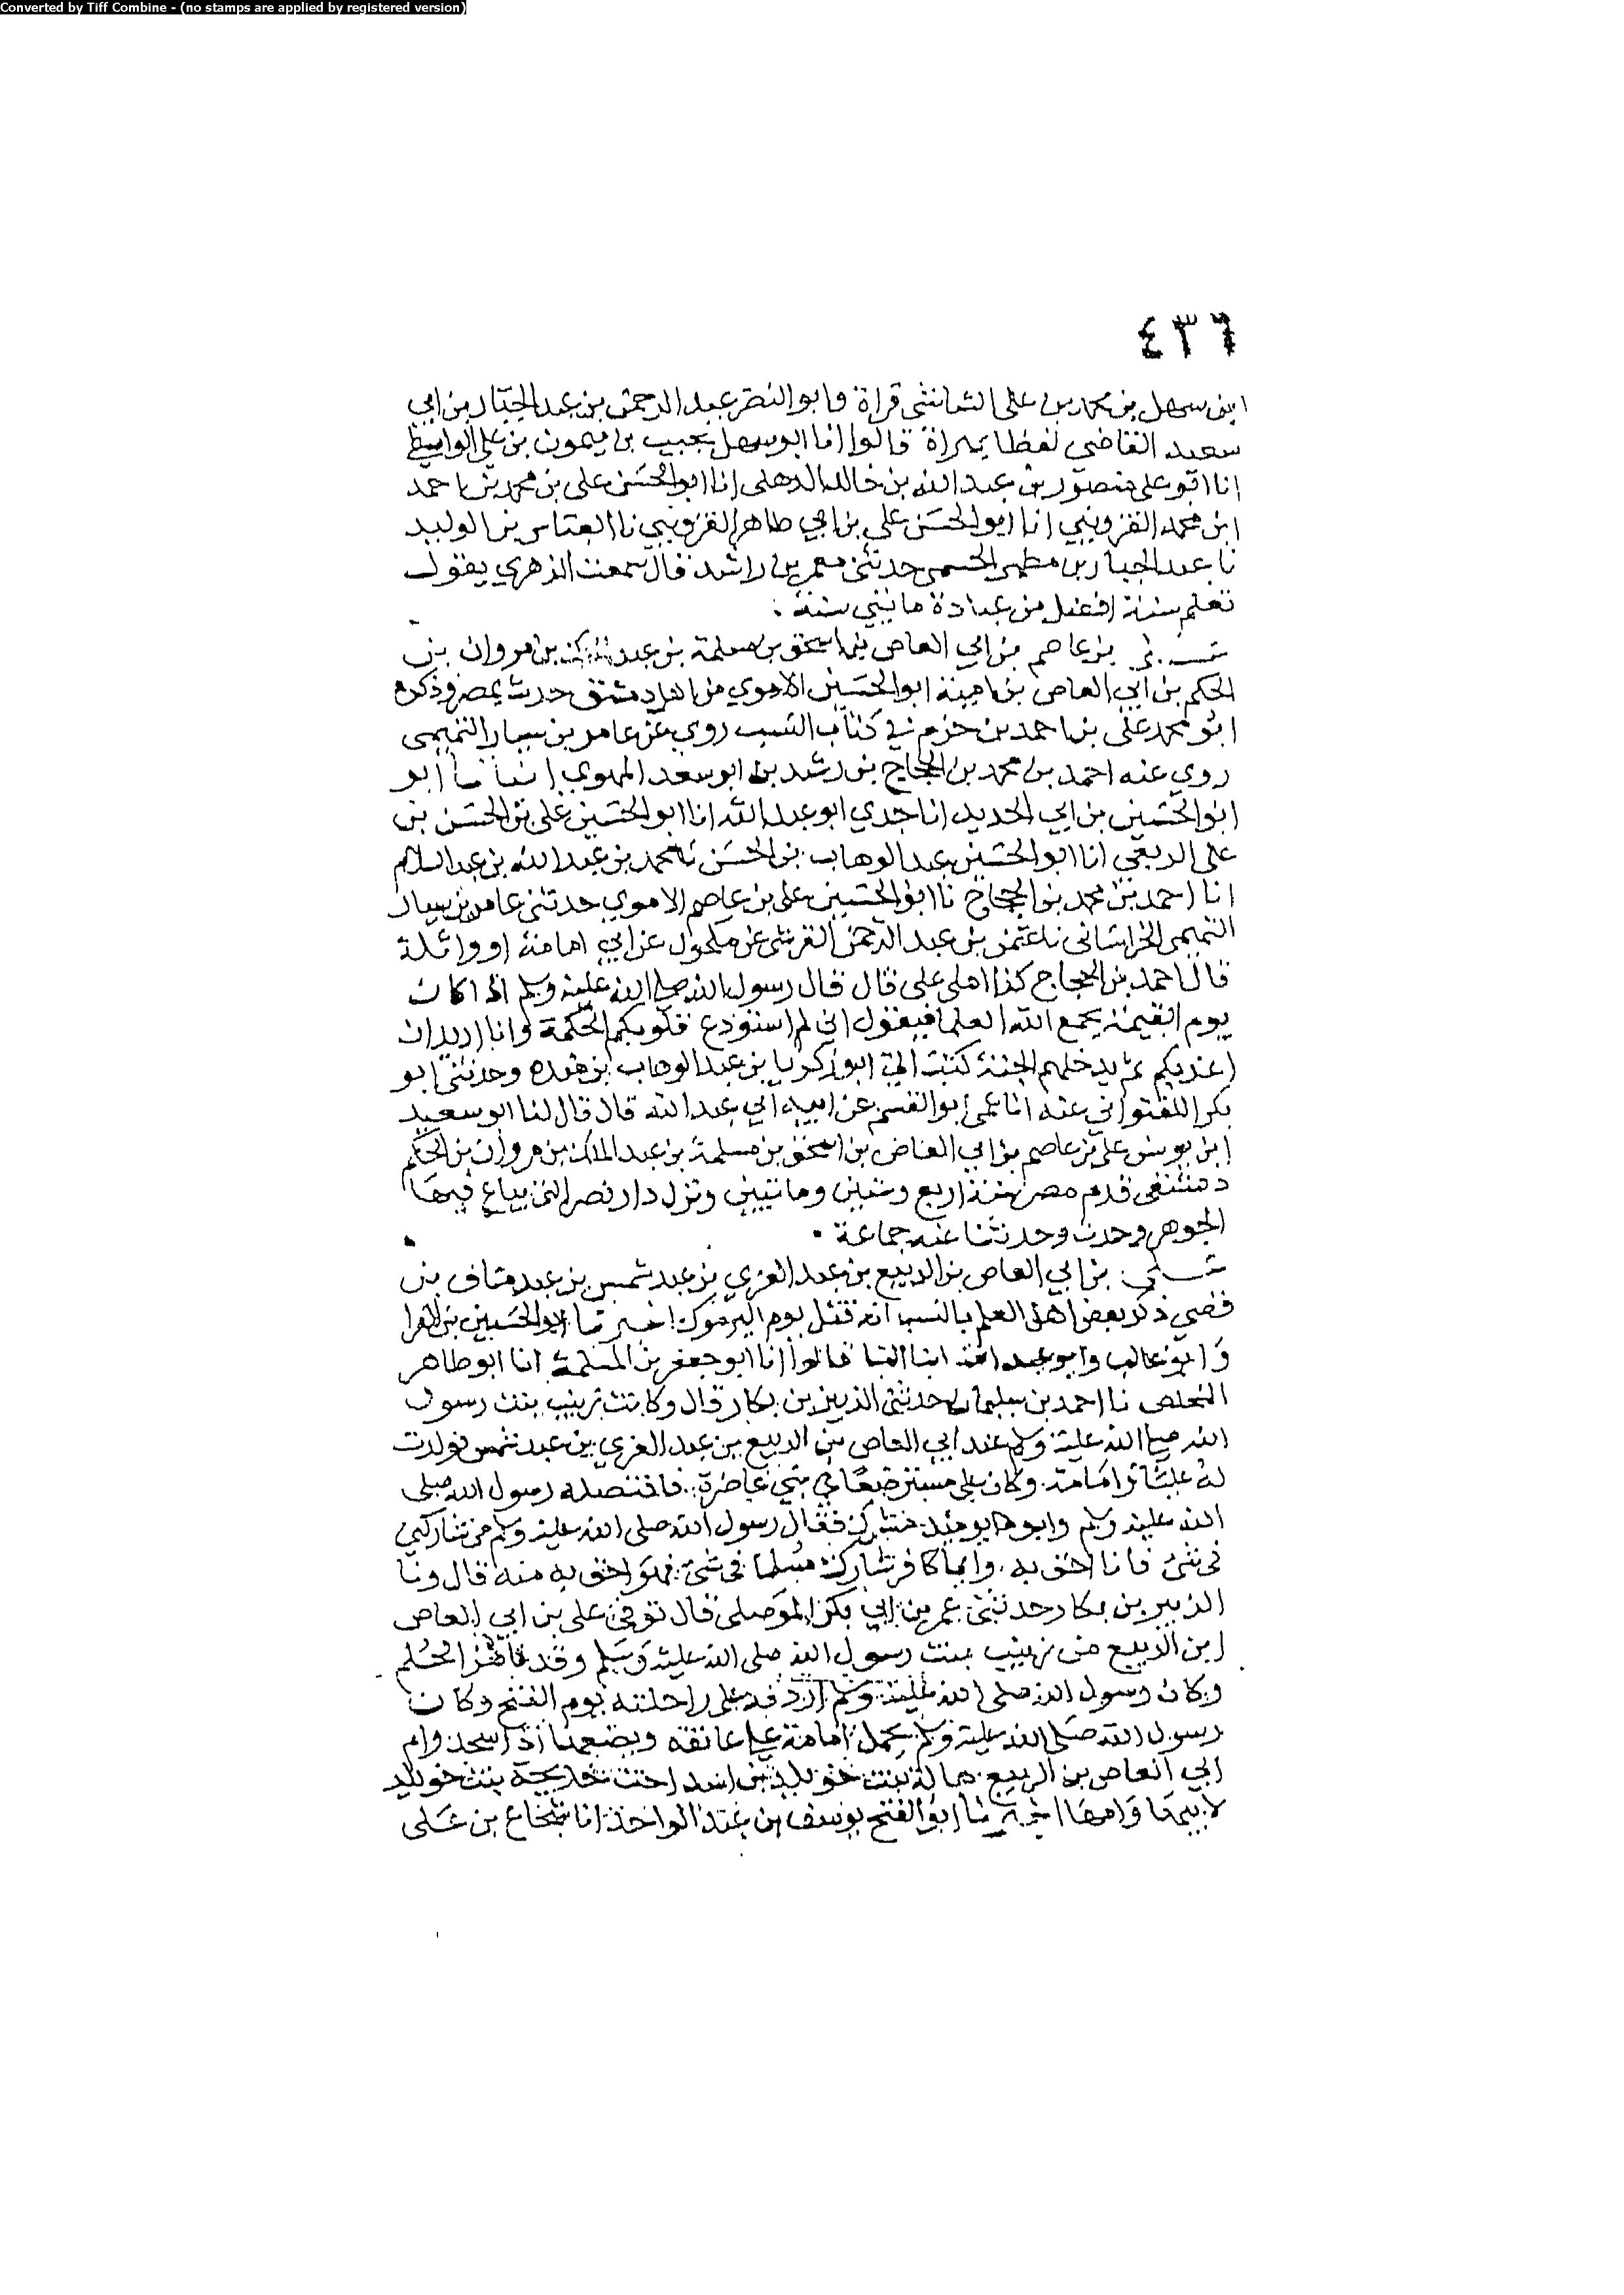 Converted by Tiff Combine - (no stamps are applied by registered version)
٤٣٦
ابن سهل بن محمد بن على الشاشى قراة وابو النضر عبد الرحمن بن عبد الجبار بن ابي
سعيد القاضي لفظا بهراة قالوا انا ابو سهل نجيب بن ميمون بن علي الواسطي
انا ابو على منصور بن عبد الله بن خالد الذهلى انا ابو الحسن على بن محمد بن احمد
ابن محمد القزويني انا ابو الحسن علي بن ابي طاهر القزويني نا العباس بن الوليد
نا عبد الجبار بن مظهر الجشمى حدثنى معمر بن راشد قال سمعت الزهري يقول
تعلم سنة افضل من عبادة مائتي سنة
بن عاصم بن ابي العاص بن اسحق بن مسلمة بن عبد بن مروان بن
الحكم بن ابي العاص بن امية ابو الحسين الاموي من اهل دمشق حدث بمصر وذكره
ابو محمد على بن احمد بن حزم في كتاب النسب روي عن عامر بن سيار التميمى
روي عنه احمد بن محمد بن الحجاج بن رشد بن ابو سعد المهري انبانا ابو
ابو الحسين بن ابي الحديد انا جدي ابو عبد الله انا ابو الحسين على بن الحسن بن
على الربعي انا ابو الحسين عبد الوهاب بن الحسن نا محمد بن عبد الله بن عبد السلام
انا احمد بن محمد بن الحجاج نا ابو الحسين على بن عاصم الاموي حدثنى عامر بن سيار
التميمى الخراسانى نا عثمن بن عبد الرحمن القرشى عن مكحول عن ابي امامة او واثلة
قال احمد بن الحجاج كذا املى على قال قال رسول الله صلى الله عليه وسلم اذا كان
يوم القيمة يجمع الله العلما فيقول اني لم استودع قلوبكم الحكمة وانا اريد ان
اعذبكم ثم يدخلهم الجنة كتبت الي ابو زكريا بن عبد الوهاب بن منده وحدثنى ابو
بكر اللفتواني عنه انا عمى ابو القسم عن ابيه ابي عبد الله قال قال لنا ابو سعيد
ابن يونس على بن عاصم بن ابي العاص بن اسحق بن مسلمة بن عبد الملك بن مروان بن الحكم
دمشقى قدم مصر سنة اربع وستين ومائتين ونزل دار نصر التى يباع فيها
الجوهر وحدث وحدثنا عنه جماعة
على بن ابي العاص بن الربيع بن عبد العزي بن عبد شمس بن عبد مناف بن
قصي ذكر بعض اهل العلم بالنسب انه قتل يوم اليرموك اخبرنا ابو الحسين بن الفرا
وابو غالب وابو عبد الله ابنا البنا قالوا انا ابو جعفر بن المسلمة انا ابو طاهر
المخلص نا احمد بن سليمان حدثنى الزبير بن بكار قال وكانت زينب بنت رسول
الله صلى الله عليه وسلم عند ابي العاص بن الربيع بن عبد العزي بن عبد شمس فولدت
له عليا وامامة وكان علي مسترضعا في بني غاضرة فافتصله رسول الله صلى
الله عليه وسلم وابوها يومئذ مشرك فقال رسول الله صلى الله عليه وسلم من شاركني
فى شئ فانا احق به وايما كافر شارك مسلما فى شئ فهو احق به منه قال ونا
الزبير بن بكار حدثنى عمر بن ابي بكر الموصلى قال توفى على بن ابي العاص
ابن الربيع من زينب بنت رسول الله صلى الله عليه وسلم وقد ناهز الحلم
وكان رسول الله صلى الله عليه وسلم اردفه على راحلته يوم الفتح وكان
رسول الله صلى الله عليه وسلم يحمل امامة علي عاتقه ويضعها اذا سجد وام
ابي العاص بن الربيع هالة بنت خويلد بن اسد اخت خديجة بنت خويلد
لابيها وامها اخبرنا ابو الفتح يوسف بن عبد الواحد انا شجاع بن على